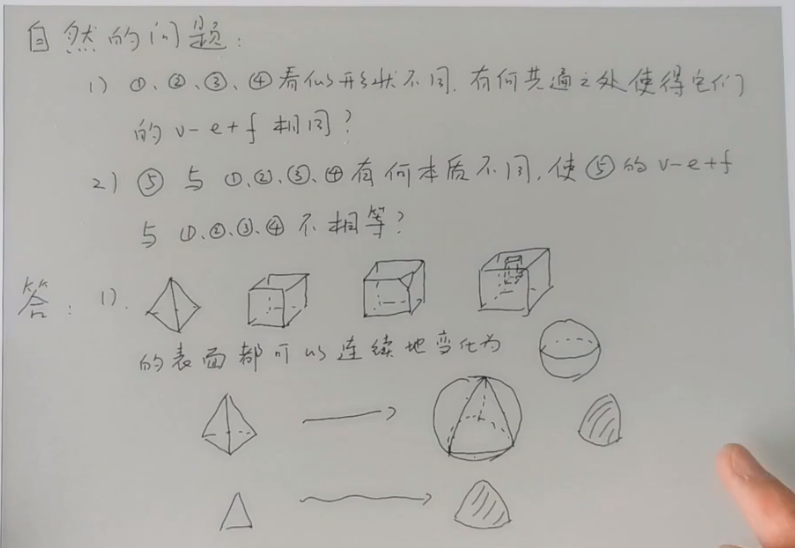 自然的问题:
1) ①、②、③、④看似形状不同,有何共通之处使得它们
的 v-e+f 相同?
2) ⑤ 与 ①、②、③、④有何本质不同,使⑤的 v-e+f
与 ①、②、③、④ 不相等?
答: 1).
的表面都可以连续地变化为